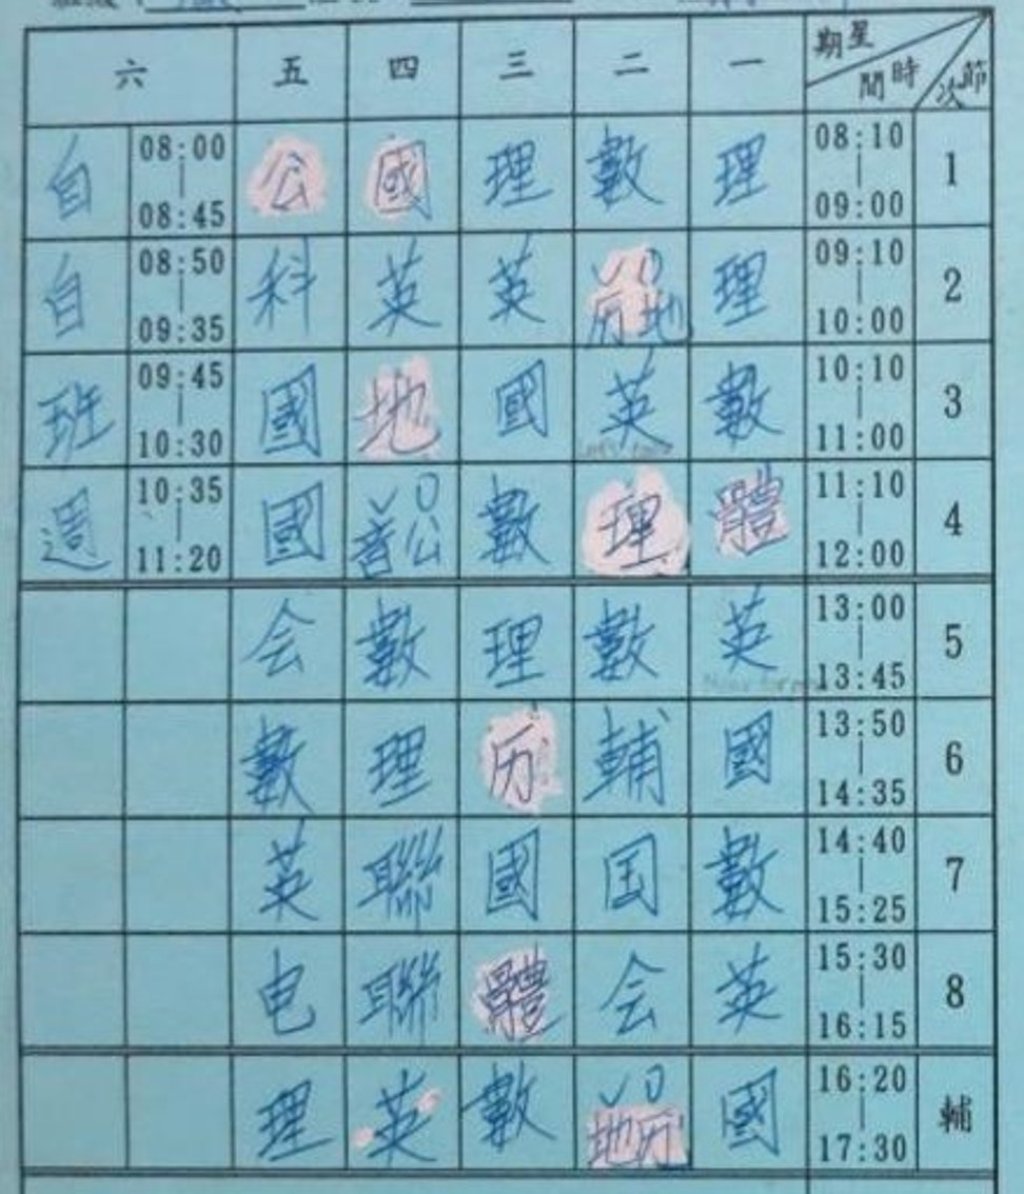 六 五 四 三 二 一 星期 時間 節次
自 08:00 | 08:45 公 國 理 數 理 08:10 | 09:00 1
自 08:50 | 09:35 科 英 英 历 地 理 09:10 | 10:00 2
班 09:45 | 10:30 國 地 國 英 數 10:10 | 11:00 3
週 10:35 | 11:20 國 音 公 數 理 體 11:10 | 12:00 4
会 數 理 數 英 13:00 | 13:45 5
數 理 历 輔 國 13:50 | 14:35 6
英 聯 國 国 數 14:40 | 15:25 7
电 聯 體 会 英 15:30 | 16:15 8
理 英 數 地 历 國 16:20 | 17:30 輔